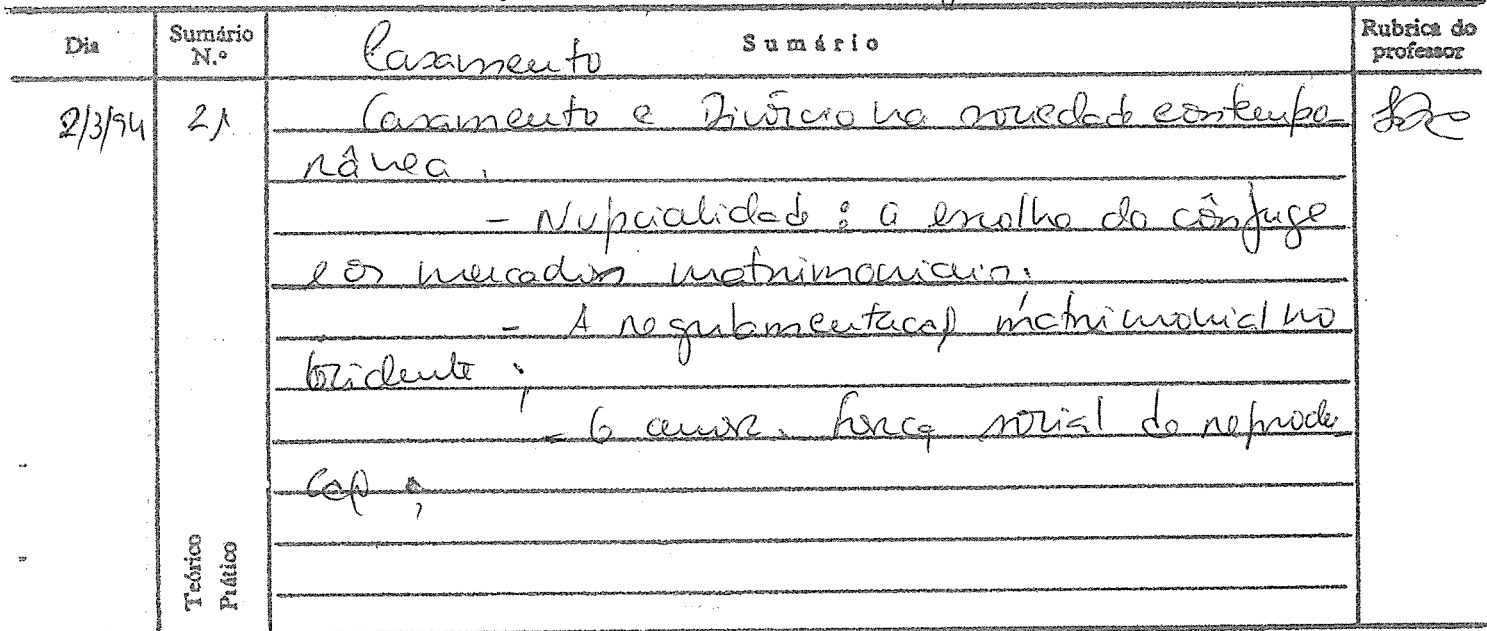 Dia Sumário N.º Sumário Rubrica do professor
Casamento
2/3/94 21 Casamento e Divórcio na sociedade contempo-
rânea.
- Nupcialidade : a escolha do cônjuge
e os mercados matrimoniais.
- A regulamentação matrimonial no
Ocidente ;
- O amor. força social de reprodu
ção ;
Teórico
Prático